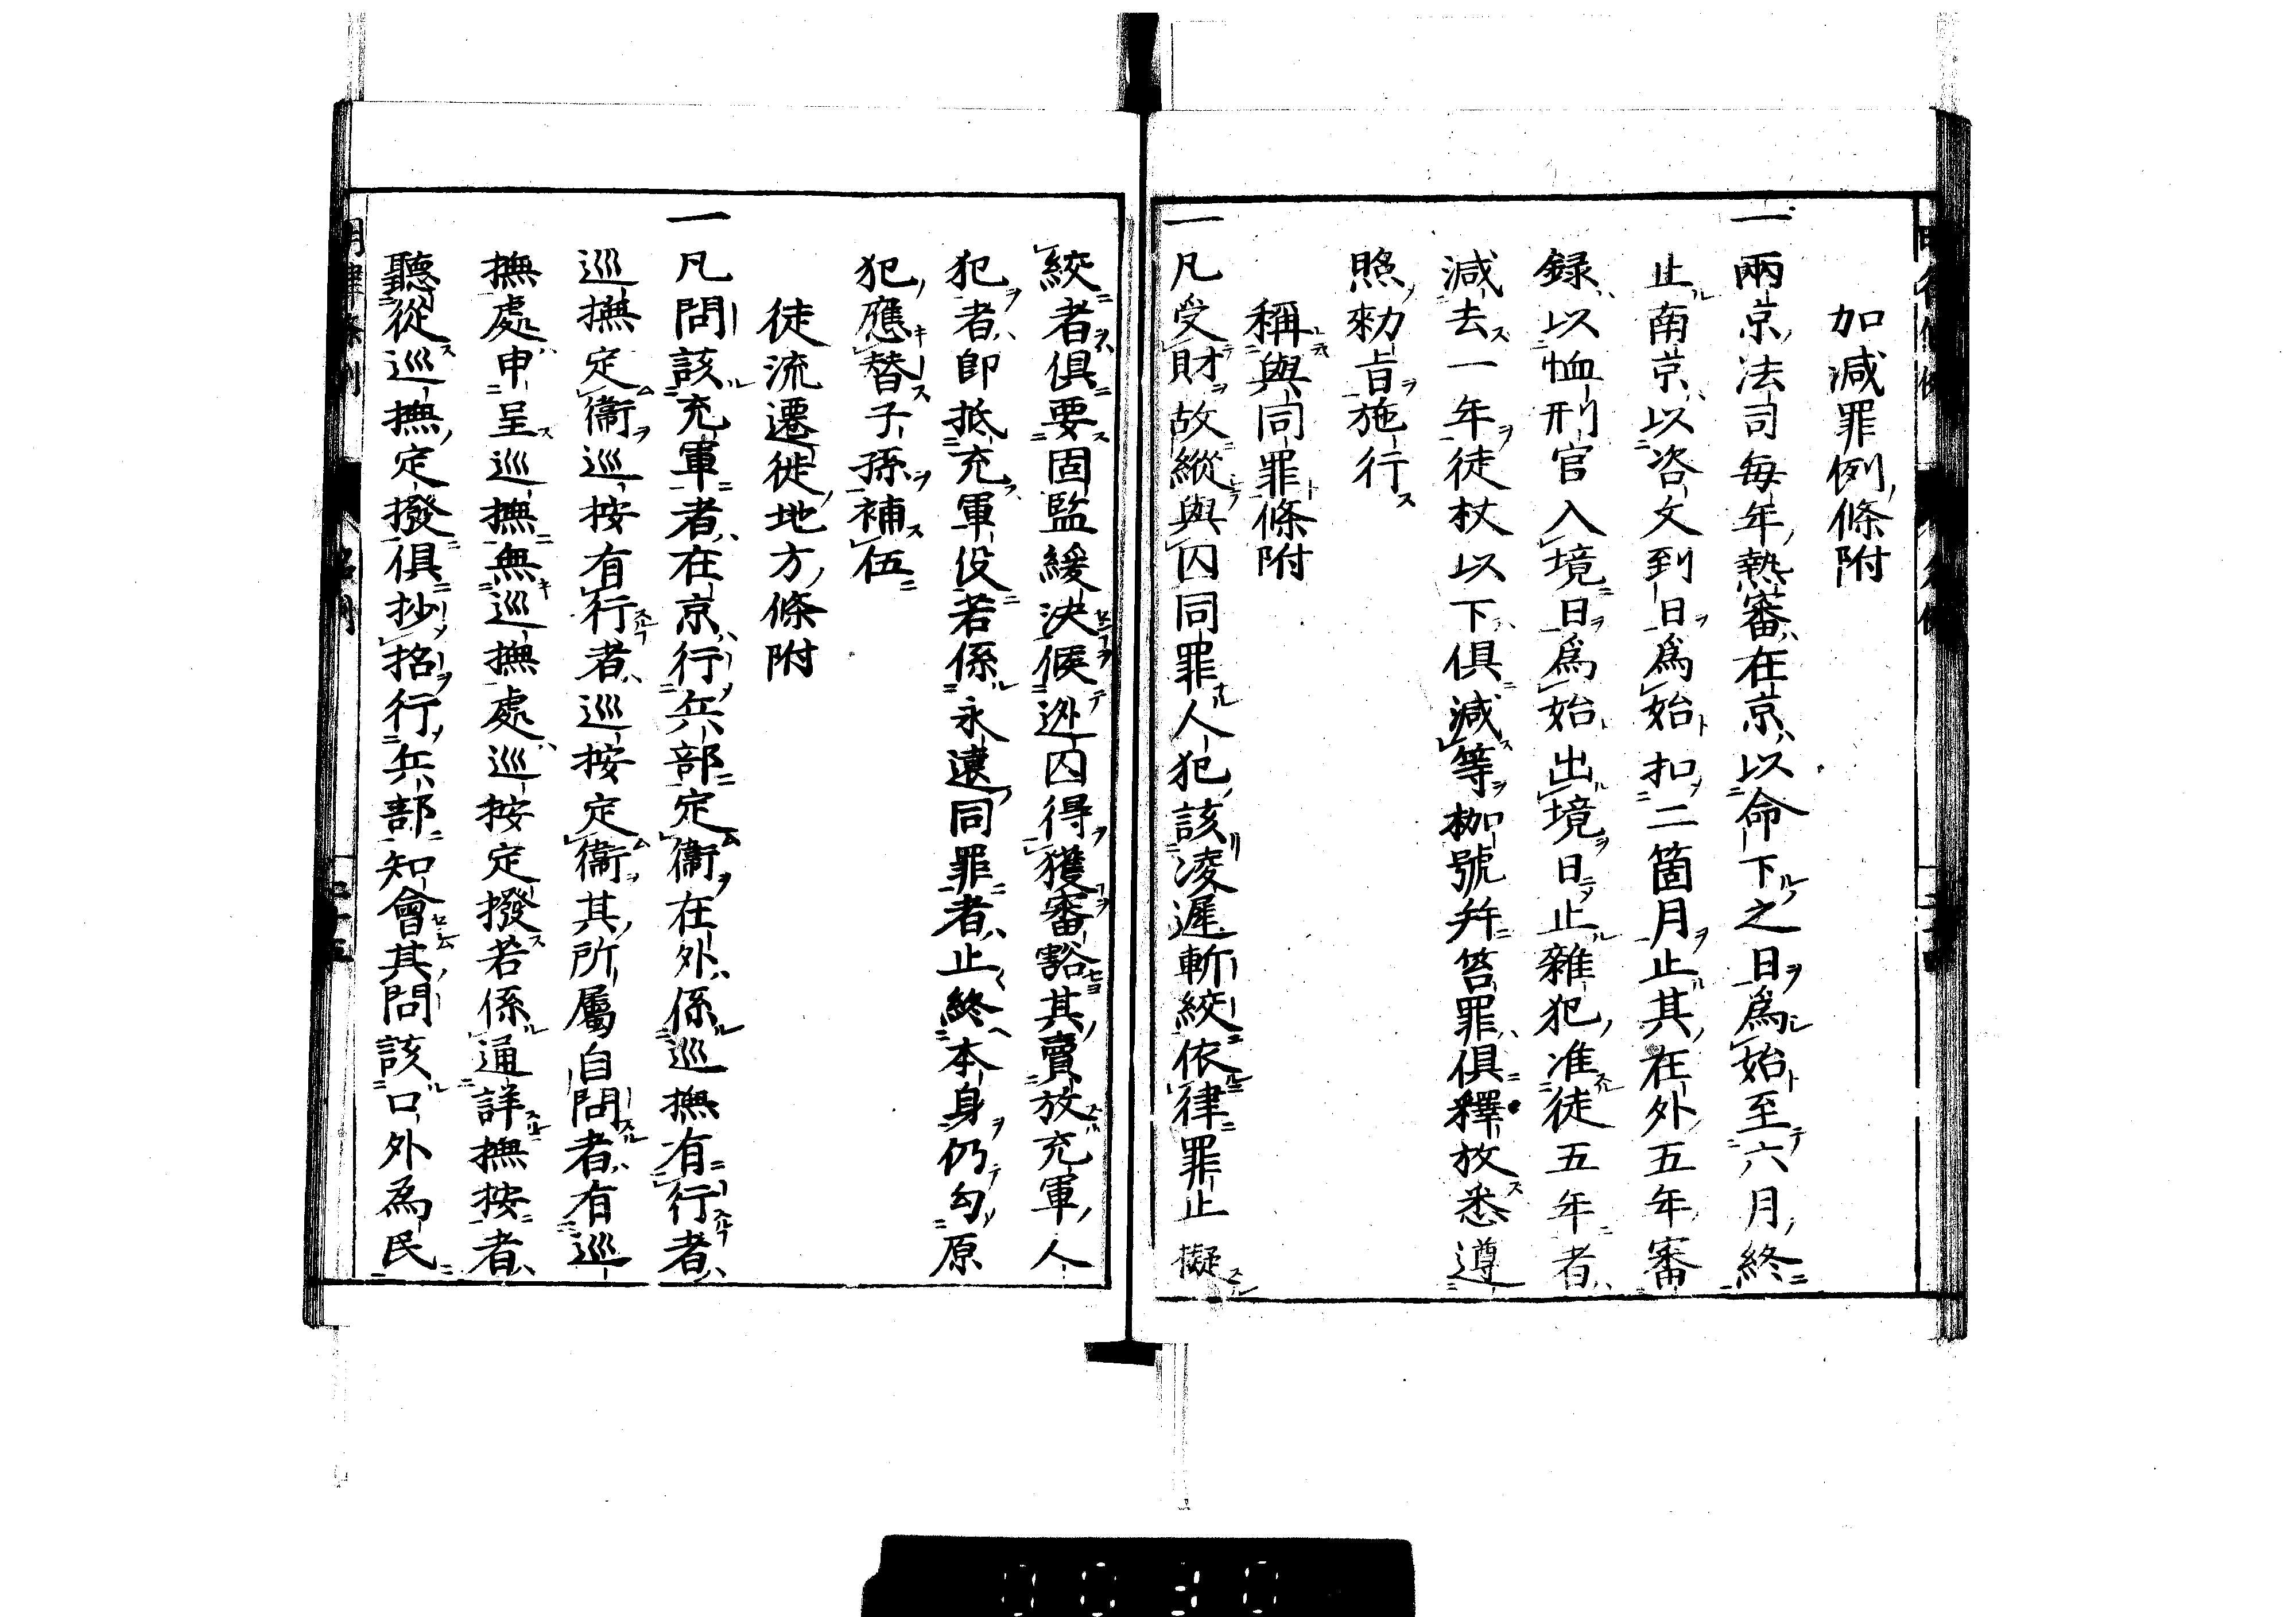 加減罪例條附
一兩京法司每年熱審在京以命下之日爲始至六月終
止南京以咨文到日爲始扣二箇月止其在外五年審
録以恤刑官入境日爲始出境日止雜犯准徒五年者
減去一年徒杖以下俱減等枷號并笞罪俱釋放悉遵
照勅旨施行
稱與同罪條附
一凡受財故縱與囚同罪人犯該凌遲斬絞依律罪止擬
絞者俱要固監緩決候逃囚得獲審豁其賣放充軍人
犯者即抵充軍役若係永遠同罪者止終本身仍勾原
犯應替子孫補伍
徒流遷徙地方條附
一凡問該充軍者在京行兵部定衞在外係巡撫有行者
巡撫定衞巡按有行者巡按定衞其所屬自問者有巡
撫處申呈巡撫無巡撫處巡按定撥若係通詳撫按者
聽從巡撫定撥俱抄招行兵部知會其問該口外爲民